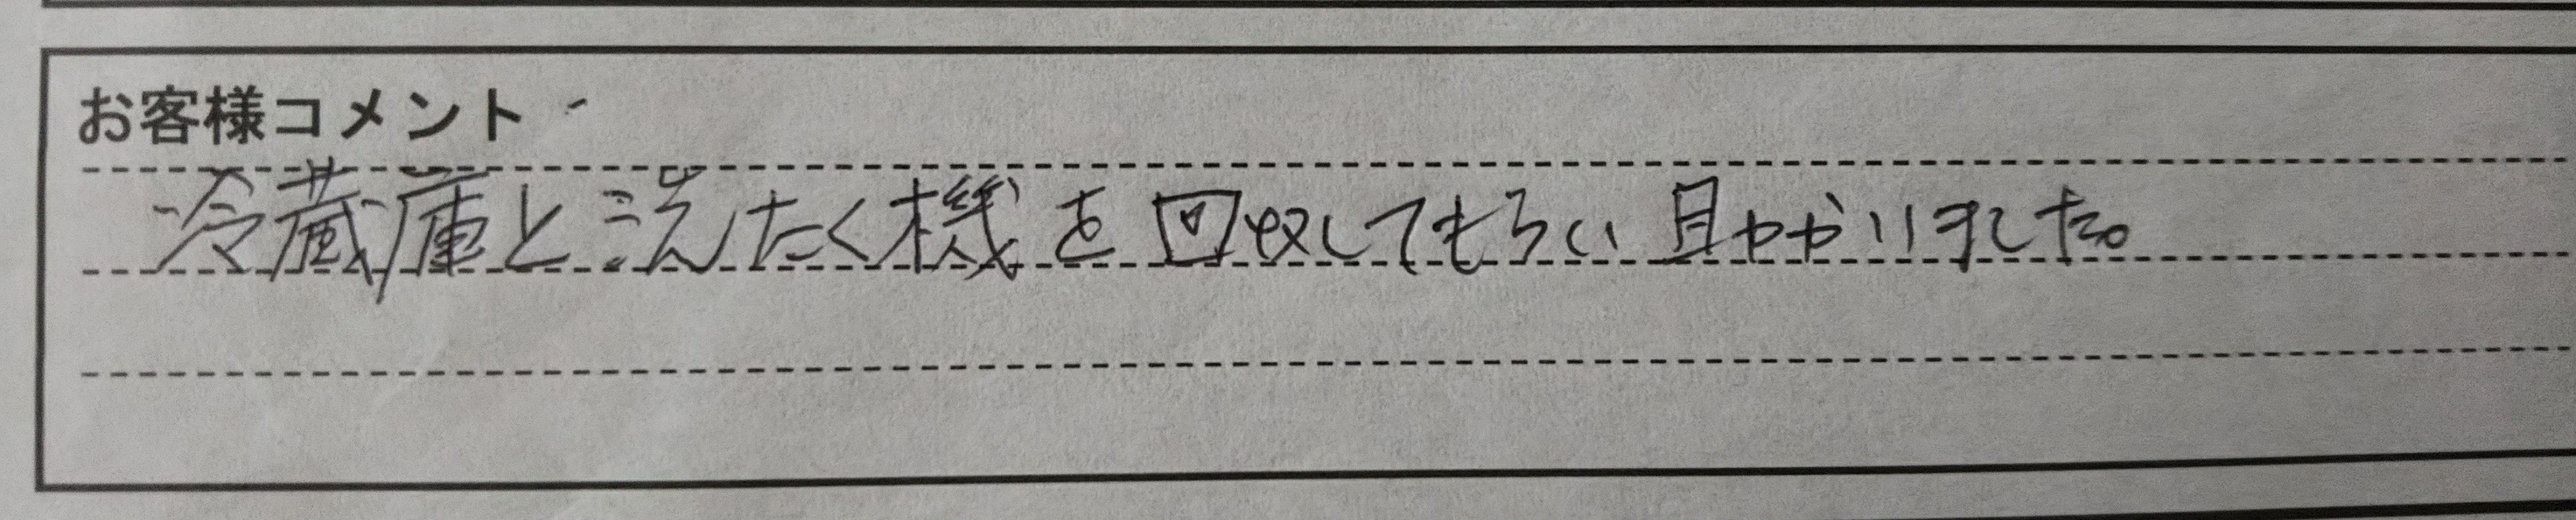 お客様コメント
冷蔵庫と洗たく機を回収してもらい助かりました。